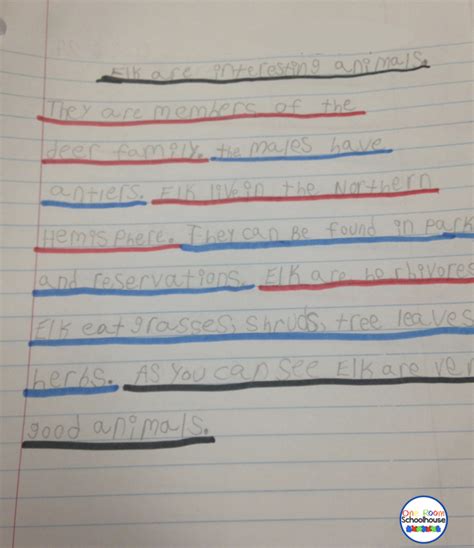 Elk are interesting animals.
They are members of the
deer family. the males have
antlers. Elk live in the Northern
Hemisphere. They can Be found in park
and reservations. Elk are herhivores
Elk eat grasses, shruds, tree leaves
herbs. As you can see Elk are ver
good animals.
One Room
Schoolhouse